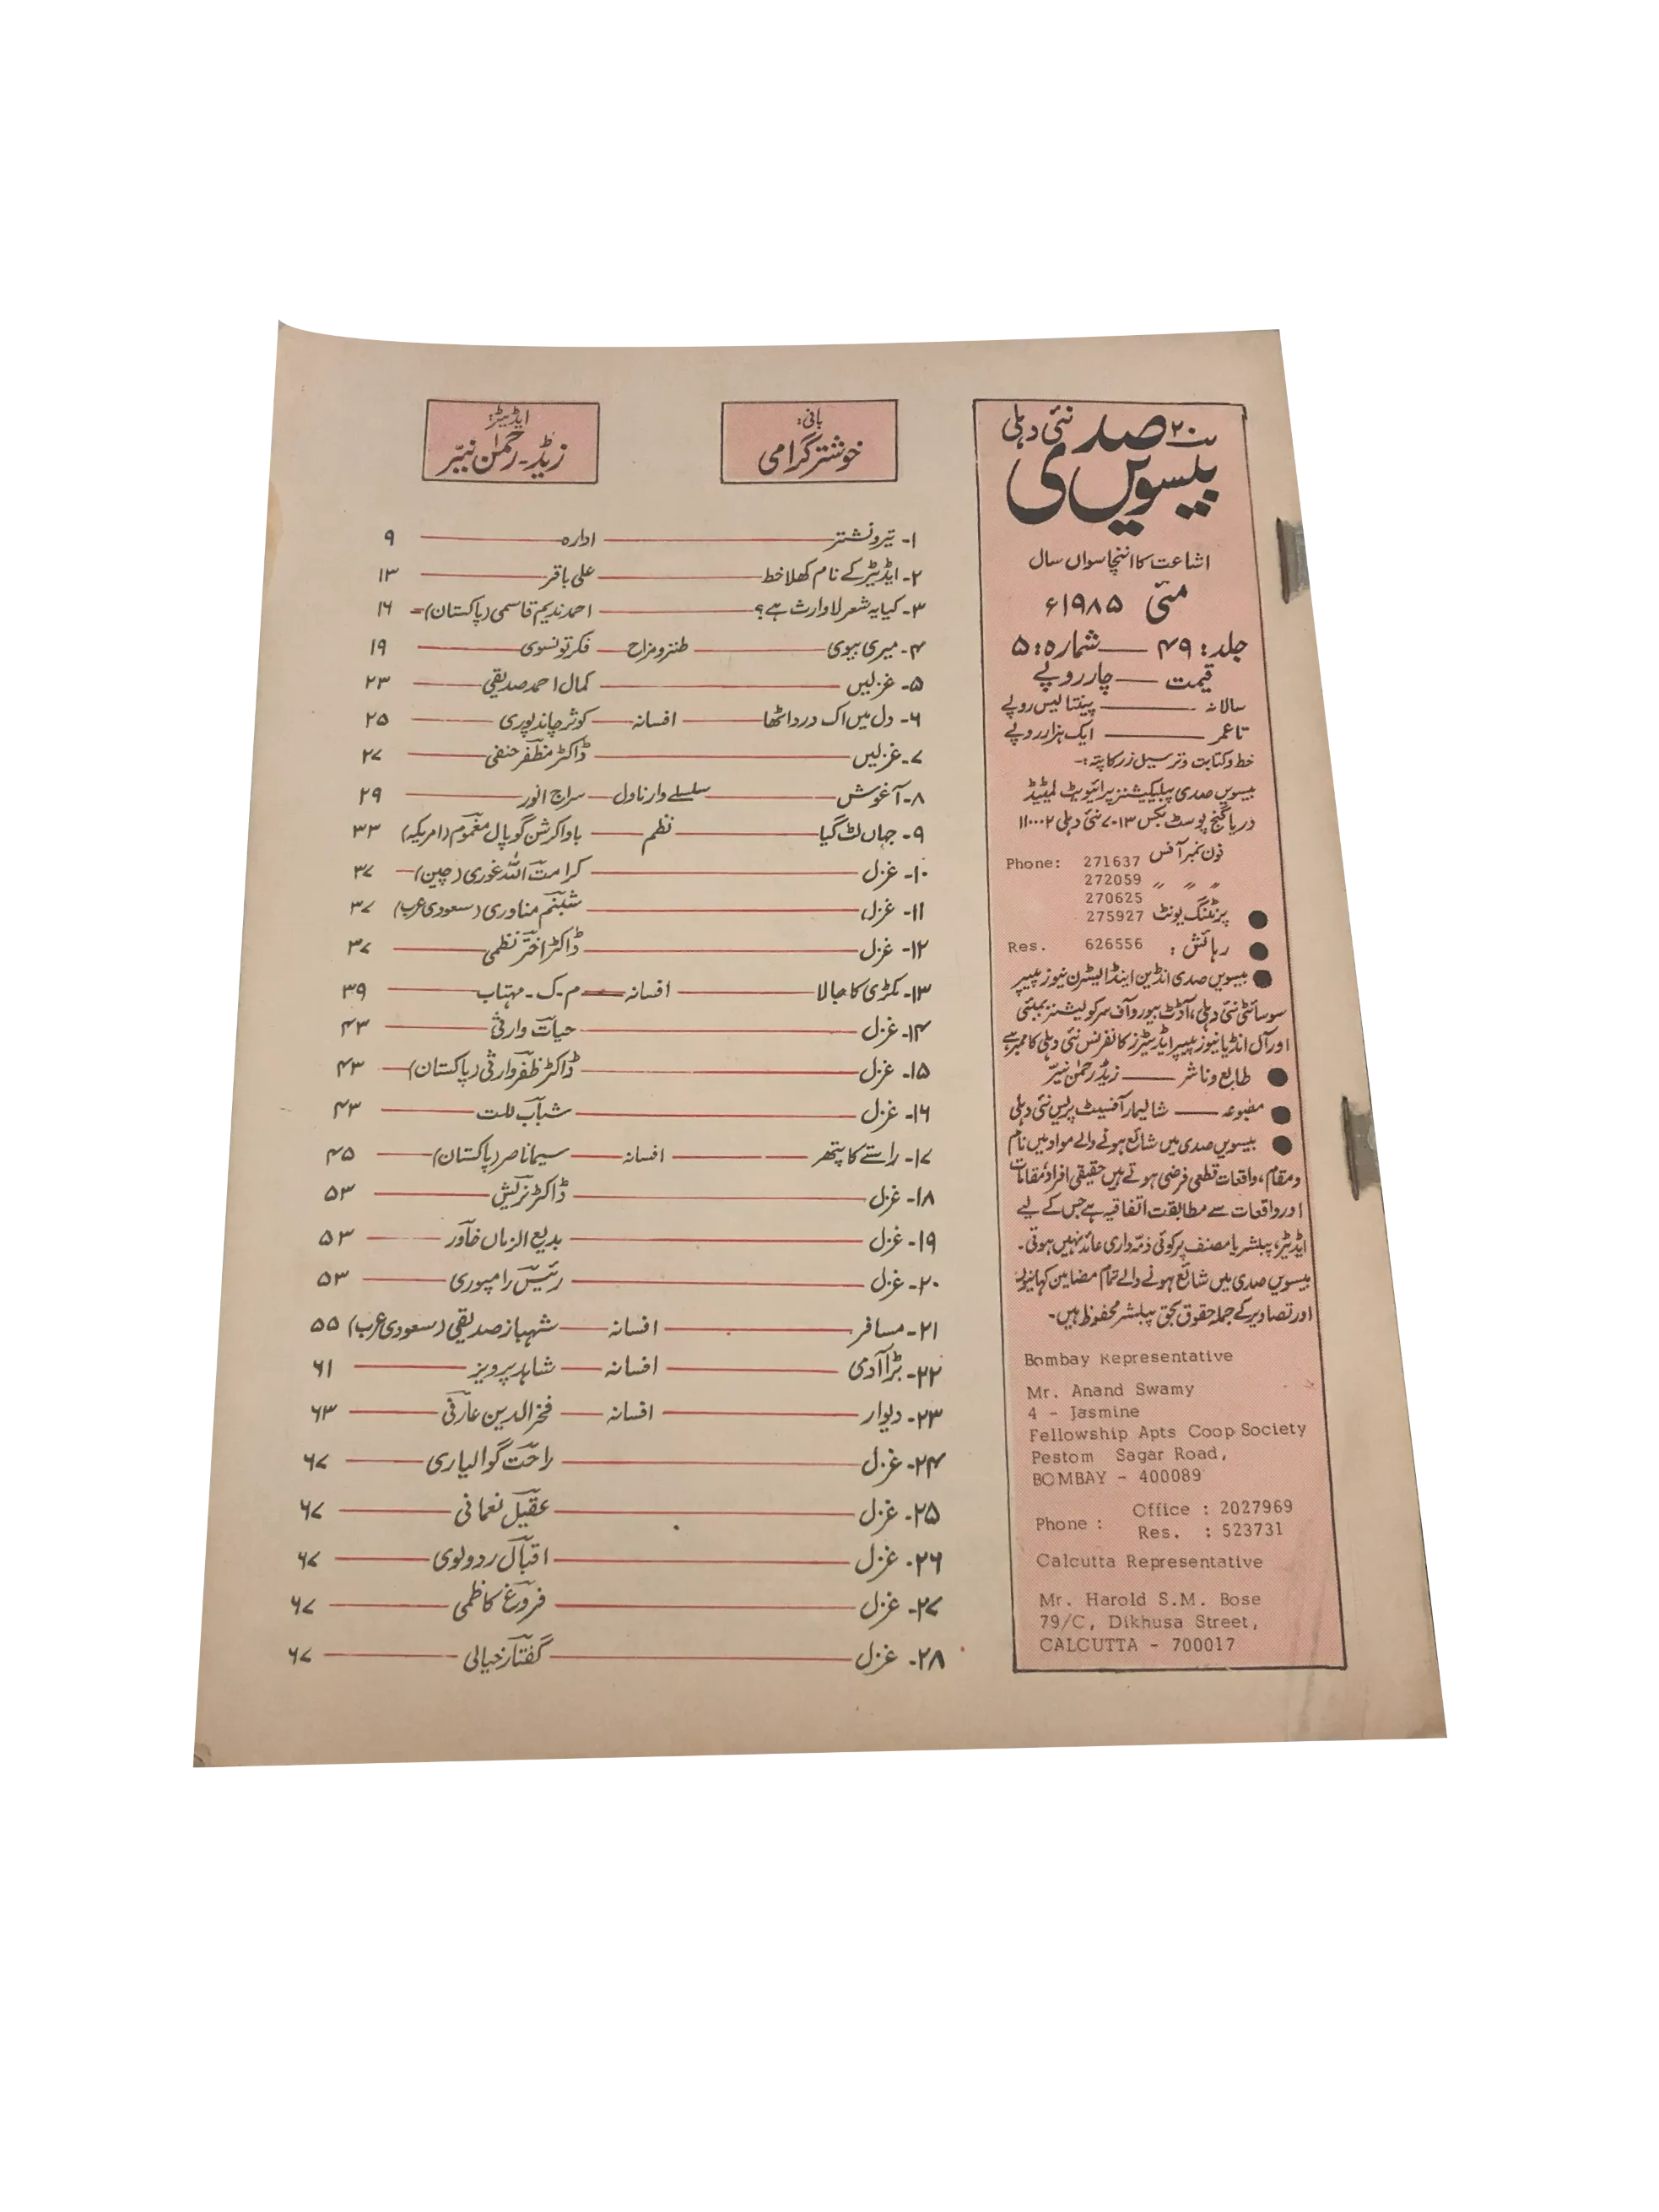 بیسویں صدی ۲۰ نئی دہلی
اشاعت کا انچاسواں سال
مئی ۱۹۸۵ء
جلد: ۴۹ — شمارہ: ۵
قیمت — چار روپے
سالانہ — پینتالیس روپے
تاعمر — ایک ہزار روپے
خط و کتابت و ترسیل زر کا پتہ :-
بیسویں صدی پبلیکیشنز پرائیویٹ لمیٹیڈ
دریا گنج پوسٹ بکس ۷۰۱۳ نئی دہلی ۱۱۰۰۰۲
Phone: 271637 فون نمبر آفس
272059 〃 〃 〃
270625
● پرنٹنگ یونٹ 275927
● رہائش : 626556 Res.
● بیسویں صدی انڈین اینڈ ایسٹرن نیوز پیپر
سوسائٹی نئی دہلی، آڈٹ بیورو آف سرکولیشنز بمبئی
اور آل انڈیا نیوز پیپر ایڈیٹرز کانفرنس نئی دہلی کا ممبر ہے
● طابع و ناشر — زیڈ رحمٰن نیّر
● مطبوعہ — شالیمار آفسیٹ پریس نئی دہلی
● بیسویں صدی میں شائع ہونے والے مواد میں نام
و مقام، واقعات قطعی فرضی ہوتے ہیں حقیقی افراد، مقامات
اور واقعات سے مطابقت اتفاقیہ ہے جس کے لیے
ایڈیٹر، پبلشر یا مصنف پر کوئی ذمّہ داری عائد نہیں ہوتی۔
بیسویں صدی میں شائع ہونے والے تمام مضامین کہانیوں
اور تصاویر کے جملہ حقوق بحق پبلشر محفوظ ہیں۔
Bombay Representative
Mr. Anand Swamy
4 - Jasmine
Fellowship Apts Coop Society
Pestom Sagar Road,
BOMBAY - 400089
Phone : Office : 2027969
Res. : 523731
Calcutta Representative
Mr. Harold S.M. Bose
79/C, Dikhusa Street,
CALCUTTA - 700017
بانی:
خوشتر گرامی
ایڈیٹر:
زیڈ۔ رحمٰن نیّر
۱- تیر و نشتر — ادارہ — ۹
۲- ایڈیٹر کے نام کھلا خط — علی باقر — ۱۳
۳- کیا یہ شعر لاوارث ہے؟ — احمد ندیم قاسمی (پاکستان) — ۱۶
۴- میری بیوی — طنز و مزاح — فکر تونسوی — ۱۹
۵- غزلیں — کمال احمد صدیقی — ۲۳
۶- دل میں اک درد اٹھا — افسانہ — کوثر چاندپوری — ۲۵
۷- غزلیں — ڈاکٹر مظفر حنفی — ۲۷
۸- آغوش — سلسلے وار ناول — سراج انور — ۲۹
۹- جہاں لٹ گیا — نظم — باوا کرشن گوپال مغموم (امریکہ) — ۳۳
۱۰- غزل — کرامت اللہ غوری (چین) — ۳۷
۱۱- غزل — شبنم مناوری (سعودی عرب) — ۳۷
۱۲- غزل — ڈاکٹر اختر نظمی — ۳۷
۱۳- مکڑی کا جالا — افسانہ — م۔ ک۔ مہتاب — ۳۹
۱۴- غزل — حیات وارثی — ۴۳
۱۵- غزل — ڈاکٹر ظفر وارثی (پاکستان) — ۴۳
۱۶- غزل — شباب للت — ۴۳
۱۷- راستے کا پتھر — افسانہ — سیما ناصر (پاکستان) — ۴۵
۱۸- غزل — ڈاکٹر نریش — ۵۳
۱۹- غزل — بدیع الزماں خاور — ۵۳
۲۰- غزل — رئیس رامپوری — ۵۳
۲۱- مسافر — افسانہ — شہباز صدیقی (سعودی عرب) ۵۵
۲۲- بڑا آدمی — افسانہ — شاہد پرویز — ۶۱
۲۳- دیوار — افسانہ — فخر الدین عارفی — ۶۳
۲۴- غزل — راحت گوالیاری — ۶۷
۲۵- غزل — عقیل نعمانی — ۶۷
۲۶- غزل — اقبال ردولوی — ۶۷
۲۷- غزل — فروغ کاظمی — ۶۷
۲۸- غزل — گفتار خیالی — ۶۷